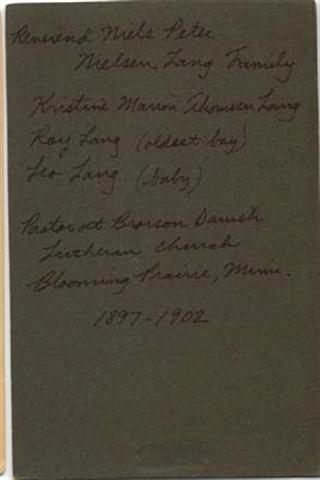 Reverend Niels Peter
Nielsen Lang Family
Kristine Marion Thomsen Lang
Roy Lang (oldest boy)
Leo Lang (baby)
Pastor at Bronson Danish
Lutheran Church
Blooming Prairie, Minn.
1897-1902